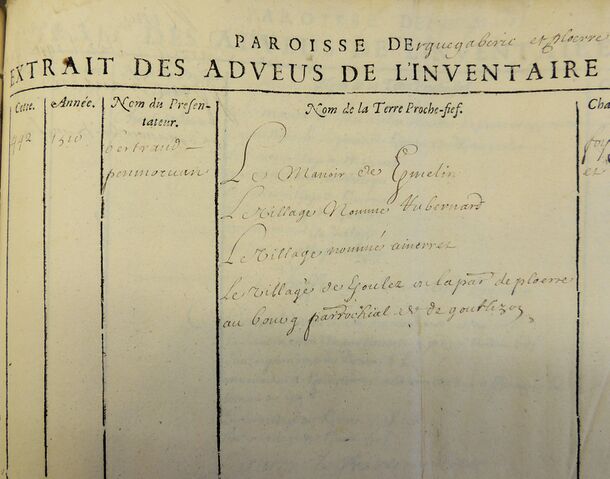 PAROISSE DErguegaberic et ploerre
EXTRAIT DES ADVEUS DE L'INVENTAIRE
Cotte. Année. Nom du Presen-tateur. Nom de la Terre Proche-fief. Cha
442 1516 bertrand penmorvan
Le Manoir de
Le Village Nommé
Le Village nommé
Le Village de en la par de ploerre
au bourg parrochial & de
foy
et